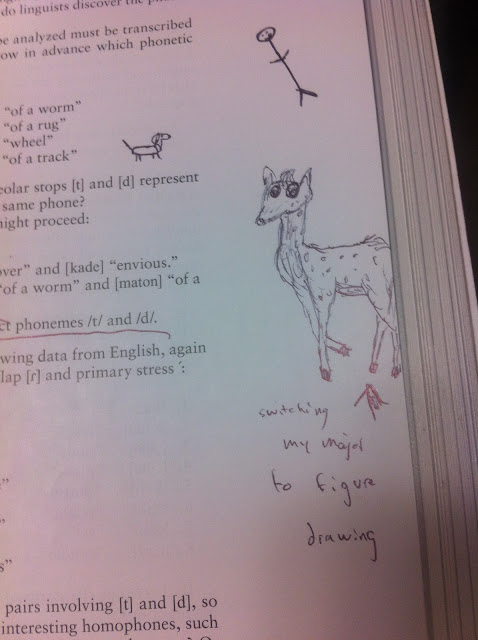 do linguists discover the p
be analyzed must be transcribed
ow in advance which phonetic
"of a worm"
"of a rug"
"wheel"
"of a track"
eolar stops [t] and [d] represent
same phone?
night proceed:
over" and [kade] "envious."
"of a worm" and [maton] "of a
ct phonemes /t/ and /d/.
wing data from English, again
lap [ɾ] and primary stress ´:
switching
my major
to figure
drawing
s"
pairs involving [t] and [d], so
interesting homophones, such